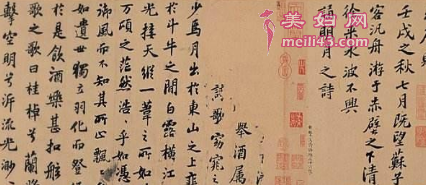 壬戌之秋七月既望蘇子
客汎舟游于赤壁之下清
徐來水波不興
誦明月之詩
舉酒属
歌窈窕之
少焉月出於東山之上
於斗牛之間白露橫江
光接天縱一葦之所如
万頃之茫然浩乎如
御風而不知其所止飄
如遺世獨立羽化而登
於是飲酒樂甚扣舷
歌之歌曰桂棹兮蘭
擊空明兮泝流光渺
美妇网
meili43.com